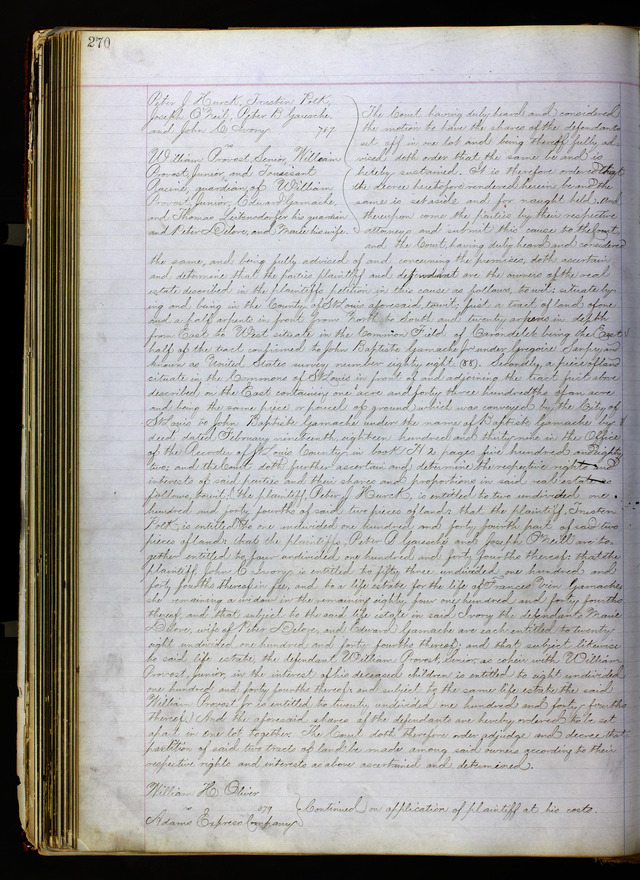 270
Peter J. Hurck, Trusten Polk,
Joseph O'Neil, Peter B. Garesche
and John C. Ivory. 787
vs
William Provost Senior, William
Provost Junior, and Toussaint
Racine, guardian of William
Provost Junior, Eduard Gamache,
and Thomas Leitensdorfer his guardian
and Peter Delore, and Marie his wife.
The Court having duly heard and considered
the motion to have the shares of the defendants
set off in one lot and being thereof fully ad
vised doth order that the same be and is
hereby sustained. It is therefore ordered that
the decree heretofore rendered herein be and the
same is set aside and for naught held. And
thereupon come the parties by their respective
attorneys and submit this cause to the Court,
and the Court, having duly heard and considered
the same, and being fully advised of and concerning the premises, doth ascertain
and determine that the parties plaintiff and defendant are the owners of the real
estate described in the plaintiffs petition in this cause as follows, to wit: situate ly-
ing and being in the County of St Louis aforesaid to wit; first a tract of land of one
and a half arpents in front from North to South and twenty arpens in depth
from East to West situate in the Common Field of Carondelet being the East
half of the tract confirmed to John Baptiste Gamache for under Gregoire Sarpy and
known as United States survey number eighty eight (88). Secondly, a piece of land
situate in the Commons of St Louis in front of and adjoining the tract first above
described on the East containing one acre and forty three hundredths of an acre
and being the same piece or parcel of ground which was conveyed by the City of
St Louis to John Baptiste Gamache under the name of Baptiste Gamache by
deed dated February nineteenth eighteen hundred and thirty nine in the Office
of the Recorder of St Louis County in book H 2 pages five hundred and eighty
two; and the Court doth further ascertain and determine the respective rights and
interests of said parties and their shares and proportions in said real estate as
follows, to wit: the plaintiff, Peter J. Hurck, is entitled to two undivided one
hundred and forty fourths of said two pieces of land; that the plaintiff Trusten
Polk, is entitled to one undivided one hundred and forty fourth part of said two
pieces of land; that the plaintiffs, Peter B Garesche and Joseph O'Neill are to-
gether entitled to four undivided one hundred and forty fourths thereof; that the
plaintiff John C. Ivory is entitled to fifty three undivided one hundred and
forty fourths thereof in fee, and to a life estate for the life of Gamache
she remaining a widow in the remaining eighty four one hundred and forty fourths
thereof, and that subject to the said life estate in said Ivory the defendants Marie
Delore, wife of Peter Delore, and Edward Gamache are each entitled to twenty
eight undivided one hundred and forty fourths thereof; and that subject likewise
to said life estate, the defendant William Provost, Senior, as coheir with William
Provost, Junior, in the interest of his deceased children is entitled to eight undivided
one hundred and forty fourths thereof and subject to the same life estate the said
William Provost Jr is entitled to twenty undivided one hundred and forty-fourths
thereof. And the aforesaid shares of the defendants are hereby ordered to be set
apart in one lot together. The Court doth therefore order adjudge and decree that
partition of said two tracts of land be made among said owners according to their
respective rights and interests as above ascertained and determined.
William H. Oliver
vs 879
Adams Express Company
Continued on application of plaintiff at his costs.